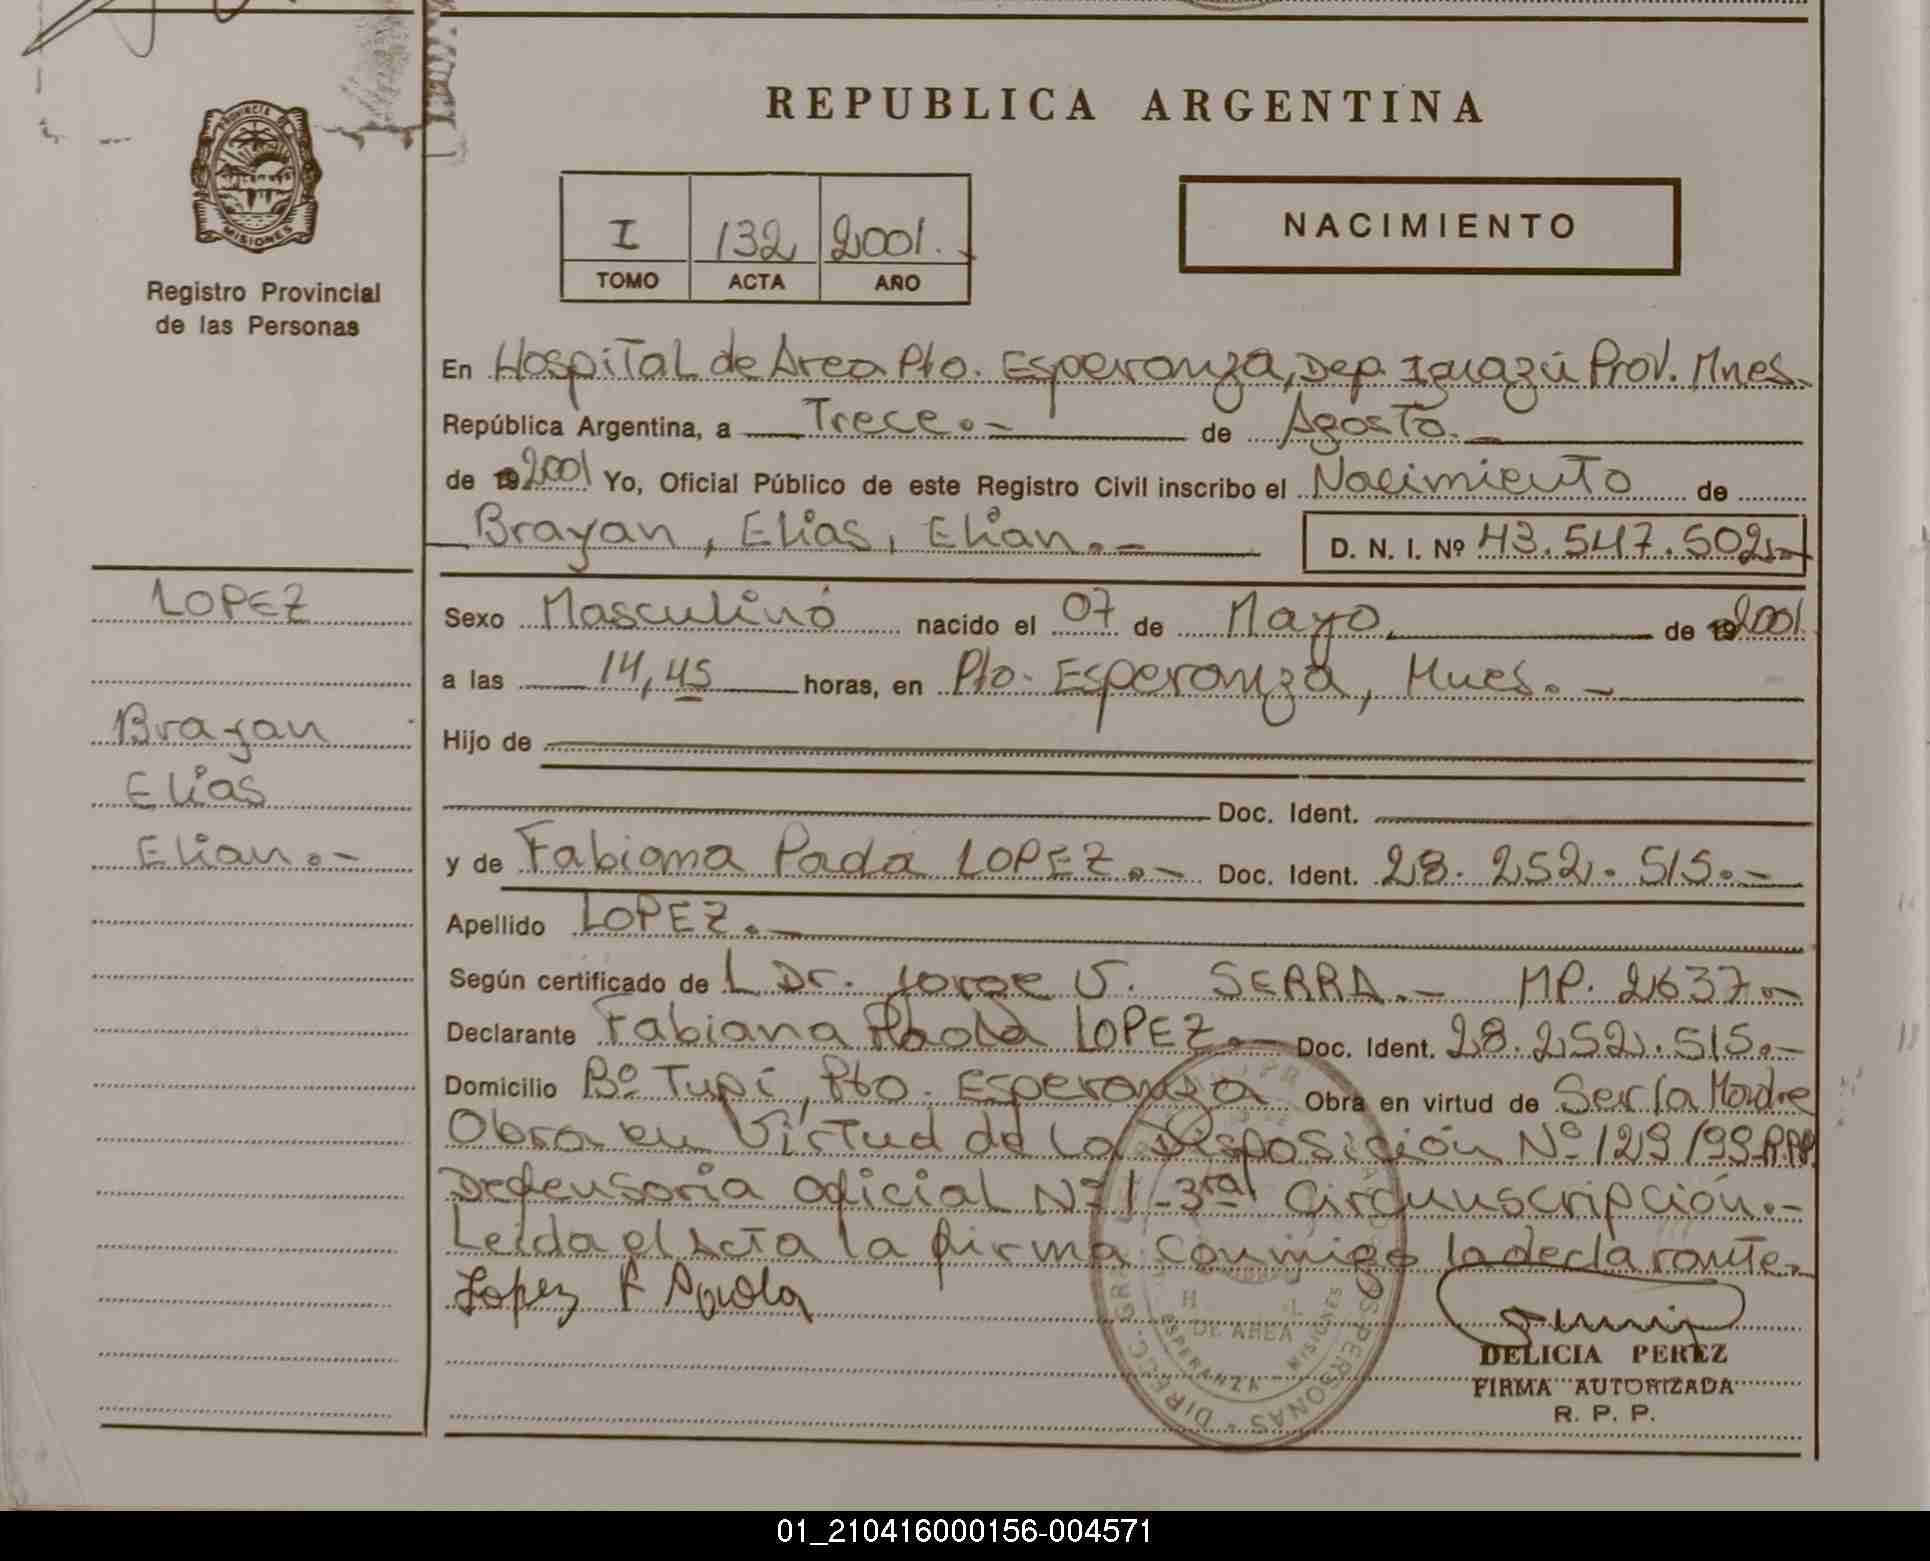 REPUBLICA ARGENTINA
PROVINCIA DE
MISIONES
Registro Provincial
de las Personas
I 132 2001.
TOMO ACTA AÑO
NACIMIENTO
En Hospital de Area Pto. Esperanza, Dep. Iguazú Prov. Mnes.
República Argentina, a Trece.- de Agosto.
de 19 2001 Yo, Oficial Público de este Registro Civil inscribo el Nacimiento de
Brayan, Elias, Elian.- D. N. I. Nº 43.547.502.-
LOPEZ
Brayan
Elias
Elian.-
Sexo Masculino nacido el 07 de Mayo de 19 2001.
a las 14,45 horas, en Pto. Esperanza, Mnes.-
Hijo de
Doc. Ident.
y de Fabiana Paola LOPEZ.- Doc. Ident. 28.252.515.-
Apellido LOPEZ.
Según certificado de L Dr. Jorge V. SERRA.- MP. 2637.-
Declarante Fabiana Paola LOPEZ.- Doc. Ident. 28.252.515.-
Domicilio Bº Tupí, Pto. Esperanza Obra en virtud de Ser la Madre
Obra en Virtud de la Disposición Nº 129/99
Defensoria Oficial Nº 1-3ra Circunscripción.-
Leida el Acta la firma conmigo la declarante.
Lopez F Paola
DE AREA
ESPERANZA - MISIONES
PERSONAS
DIREC. GRAL
DELICIA PEREZ
FIRMA AUTORIZADA
R. P. P.
01_210416000156-004571